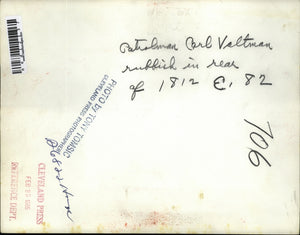 Patrolman Carl Valtman
rubbish in rear
of 1812 E. 82
PHOTO by TONY TOMSIC
CLEVELAND PRESS PHOTOGRAPHER
706
CLEVELAND PRESS
FEB
REFERENCE DEPT.